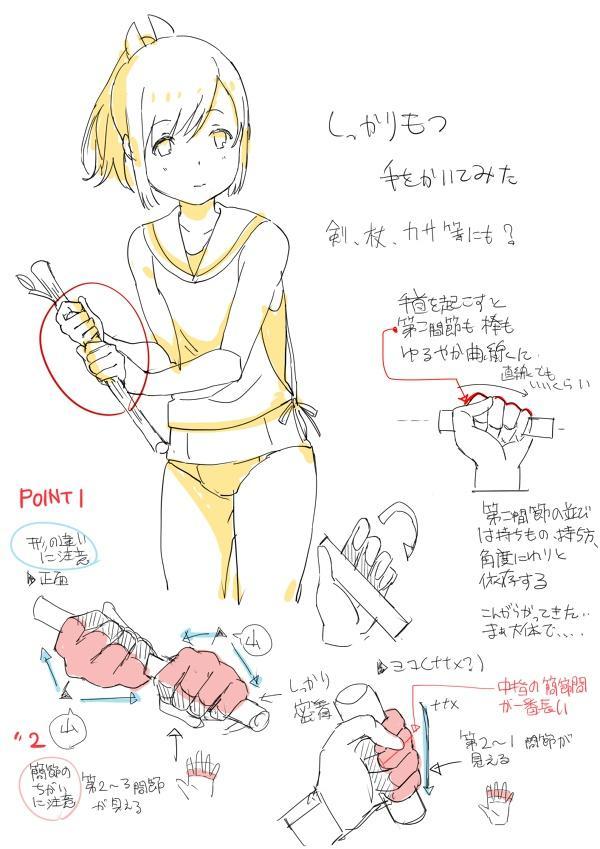 しっかりもつ
手をかいてみた
剣、杖、カサ等にも?
手首を起こすと
第二関節も棒も
ゆるやか曲線に
直線でも
いいくらい
POINT1
形の違い
に注意
正面
第二関節の並び
は持ちもの、持ち方、
角度にわりと
依存する
こんがらがってきた‥
まぁ大体で‥‥
山
山
しっかり
密着
ヨコ(ナナメ?)
ナナメ
中指の関節間
が一番長い
第2〜1関節が
見える
〃2
関節の
ちがい
に注意
第2〜3関節
が見える